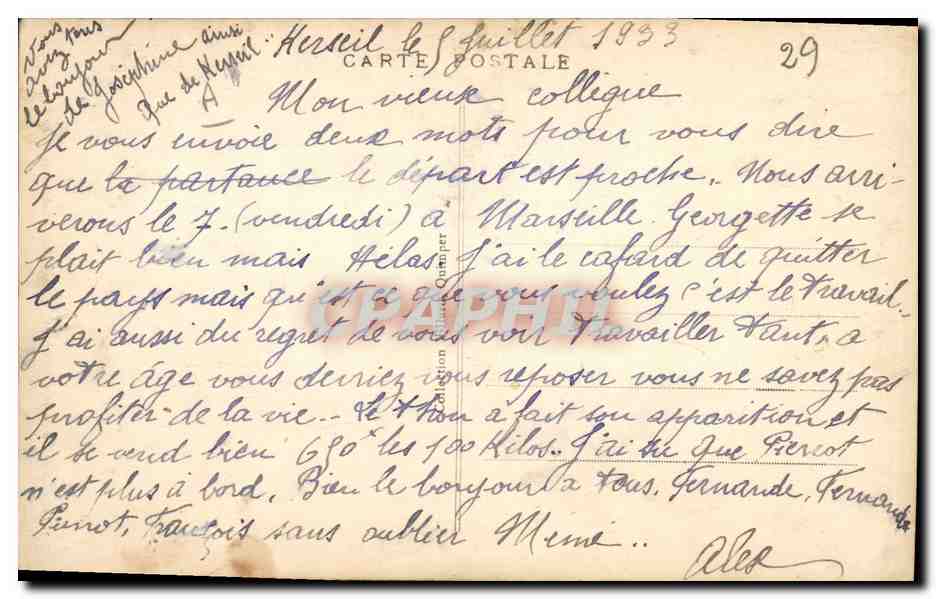 Vous
avez tous
le bonjour
de Joséphine ainsi
que de Kerseil
Kerseil le 5 Juillet 1933
29
CARTE POSTALE
Mon vieux collègue
Je vous envoie deux mots pour vous dire
que la partance le départ est proche.. Nous arri-
verons le 7. (vendredi) à Marseille. Georgette se
plait bien mais Hélas j'ai le cafard de quitter
le pays mais qu'est ce que vous voulez c'est le travail..
J'ai aussi du regret de vous voir travailler tant. a
votre âge vous devriez vous reposer vous ne savez pas
profiter de la vie.. Le thon a fait son apparition et
il se vend bien 650f les 100 Kilos.. J'ai su que Pierrot
n'est plus à bord. Bien le bonjour a tous. Fernande, Fernande
Pierrot, François sans oublier Mémé..
Alex
Collection Quimper
CPAPHIL